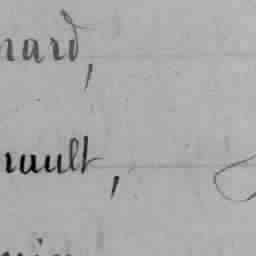 nard,
rault,